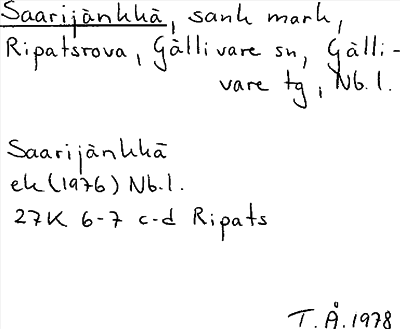 Saarijänkkä, sank mark,
Ripatsrova, Gällivare sn, Gälli-
vare tg, Nb.l.
Saarijänkkä
ek (1976) Nb.l.
27K 6-7 c-d Ripats
T.Å. 1978